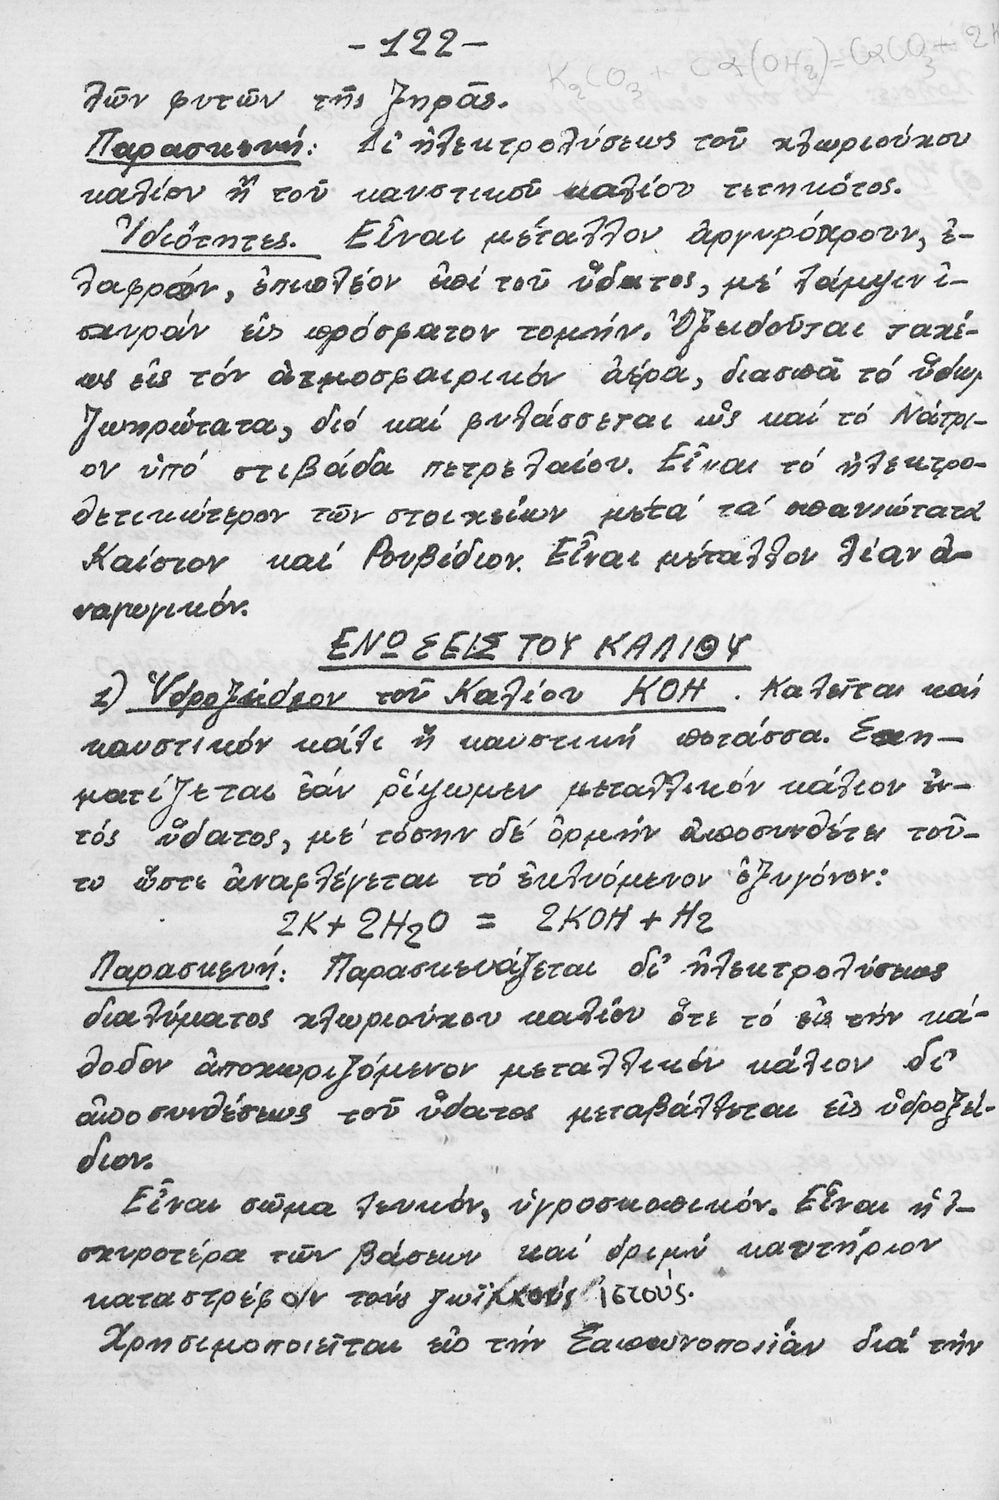 -122-
K₂CO₃ + Ca(OH₂)=CaCO₃ + 2K
λῶν φυτῶν τῆς ξηρᾶς.
Παρασκευή: Δι᾽ ἠλεκτρολύσεως τοῦ χλωριούχου
καλίου ἤ τοῦ καυστικοῦ καλίου τετηκότος.
Ἰδιότητες. Εἶναι μέταλλον ἀργυρόχρουν, ἐ-
λαφρόν, ἐπιπλέον ἐπί τοῦ ὕδατος, μέ λάμψιν ἰ-
σχυράν εἰς πρόσφατον τομήν. Ὀξειδοῦται ταχέ-
ως εἰς τόν ἀτμοσφαιρικόν ἀέρα, διασπᾶ τό ὕδωρ
ζωηρώτατα, διό καί φυλάσσεται ὡς καί τό Νάτρι-
ον ὑπό στιβάδα πετρελαίου. Εἶναι τό ἠλεκτρο-
θετικώτερον τῶν στοιχείων μετά τά σπανιώτατα
Καίσιον καί Ρουβίδιον. Εἶναι μέταλλον λίαν ἀ-
ναγωγικόν.
ΕΝΩΣΕΙΣ ΤΟΥ ΚΑΛΙΟΥ
1) Ὑδροξείδιον τοῦ Καλίου KOH. Καλεῖται καί
καυστικόν κάλι ἤ καυστική ποτάσσα. Σχη-
ματίζεται ἐάν ρίψωμεν μεταλλικόν κάλιον ἐν-
τός ὕδατος, μέ τόσην δέ ὁρμήν ἀποσυνθέτει τοῦ-
το ὥστε ἀναφλέγεται τό ἐκλυόμενον ὀξυγόνον:
2K+2H₂O = 2KOH+H₂
Παρασκευή: Παρασκευάζεται δι᾽ ἠλεκτρολύσεως
διαλύματος χλωριούχου καλίου ὅτε τό εἰς τήν κά-
θοδον ἀποχωριζόμενον μεταλλικόν κάλιον δι᾽
ἀποσυνθέσεως τοῦ ὕδατος μεταβάλλεται εἰς ὑδροξεί-
διον.
Εἶναι σῶμα λευκόν, ὑγροσκοπικόν. Εἶναι ἡ ἰ-
σχυροτέρα τῶν βάσεων καί δριμύ καυτήριον
καταστρέφον τούς ζωϊκούς ἱστούς.
Χρησιμοποιεῖται εἰς τήν Σαπωνοποιΐαν διά τήν